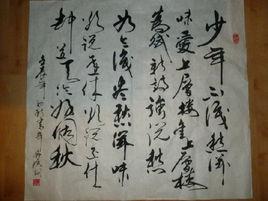 少年不識愁滋
味愛上層樓愛上層樓
為賦新詩強說愁
如今識盡愁滋味
欲說還休欲說還休
却道天涼好個秋